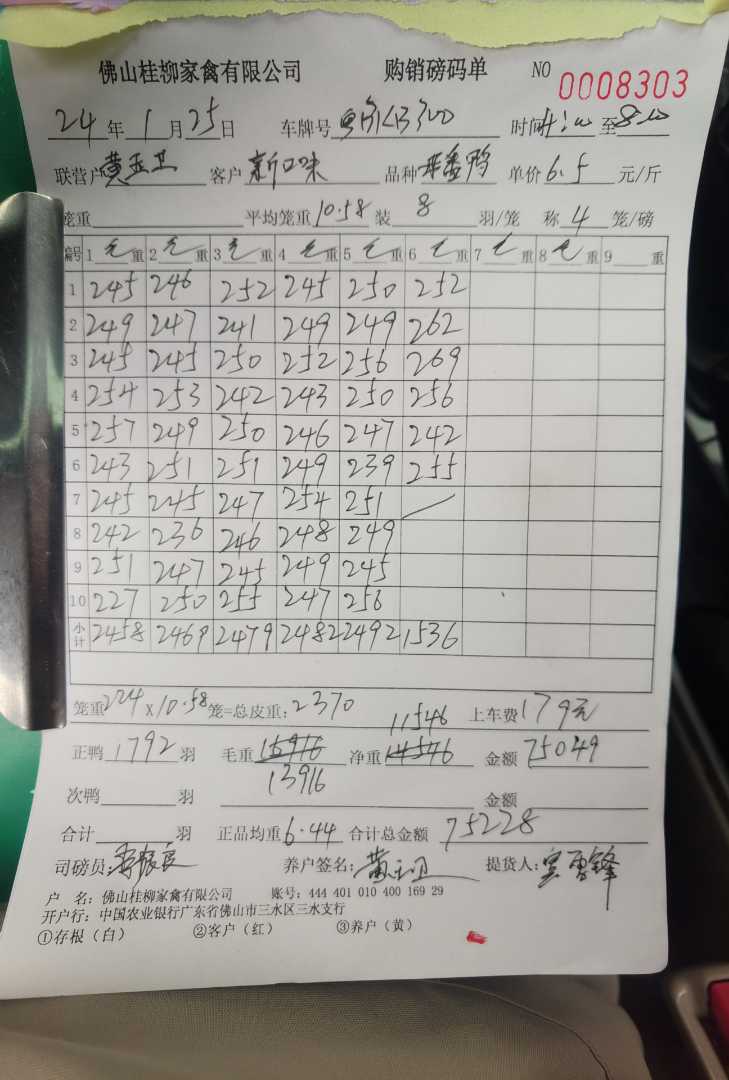 佛山桂柳家禽有限公司 购销磅码单 NO 0008303
24年1月25日 车牌号 时间 至
联营户 黄玉卫 客户 新口味 品种 番鸭 单价 6.5 元/斤
笼重 平均笼重 10.58 装 8 羽/笼 称 4 笼/磅
编号 1 毛重 2 毛重 3 毛重 4 毛重 5 毛重 6 毛重 7 毛重 8 毛重 9 重
1 245 246 252 245 250 252
2 249 247 241 249 249 262
3 245 245 250 252 256 269
4 254 253 242 243 250 256
5 257 249 250 246 247 242
6 243 251 251 249 239 255
7 245 245 247 254 251
8 242 236 246 248 249
9 251 247 245 249 245
10 227 250 255 247 256
小计 2458 2469 2479 2482 2492 1536
笼重 224 X 10.58 笼=总皮重: 2370 11546 上车费 179元
正鸭 1792 羽 毛重 15916 净重 14546 金额 75049
13916
次鸭 羽 金额
合计 羽 正品均重 6.44 合计总金额 75228
司磅员: 养户签名: 黄玉卫 提货人:
户 名: 佛山桂柳家禽有限公司 账号: 444 401 010 400 169 29
开户行: 中国农业银行广东省佛山市三水区三水支行
①存根（白） ②客户（红） ③养户（黄）